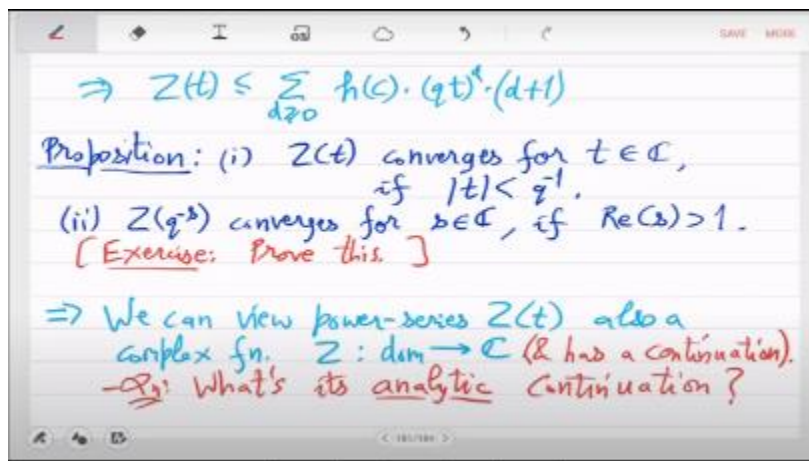 SAVE MORE
⇒ Z(t) ≤ Σ_{d≥0} h(C)·(qt)^d·(d+1)
Proposition: (i) Z(t) converges for t∈ℂ,
if |t|<q⁻¹.
(ii) Z(q^{-s}) converges for s∈ℂ, if Re(s)>1.
[Exercise: Prove this.]
⇒ We can view power-series Z(t) also a
complex fn. Z: dom → ℂ (& has a continuation).
-Qn: What's its analytic continuation?